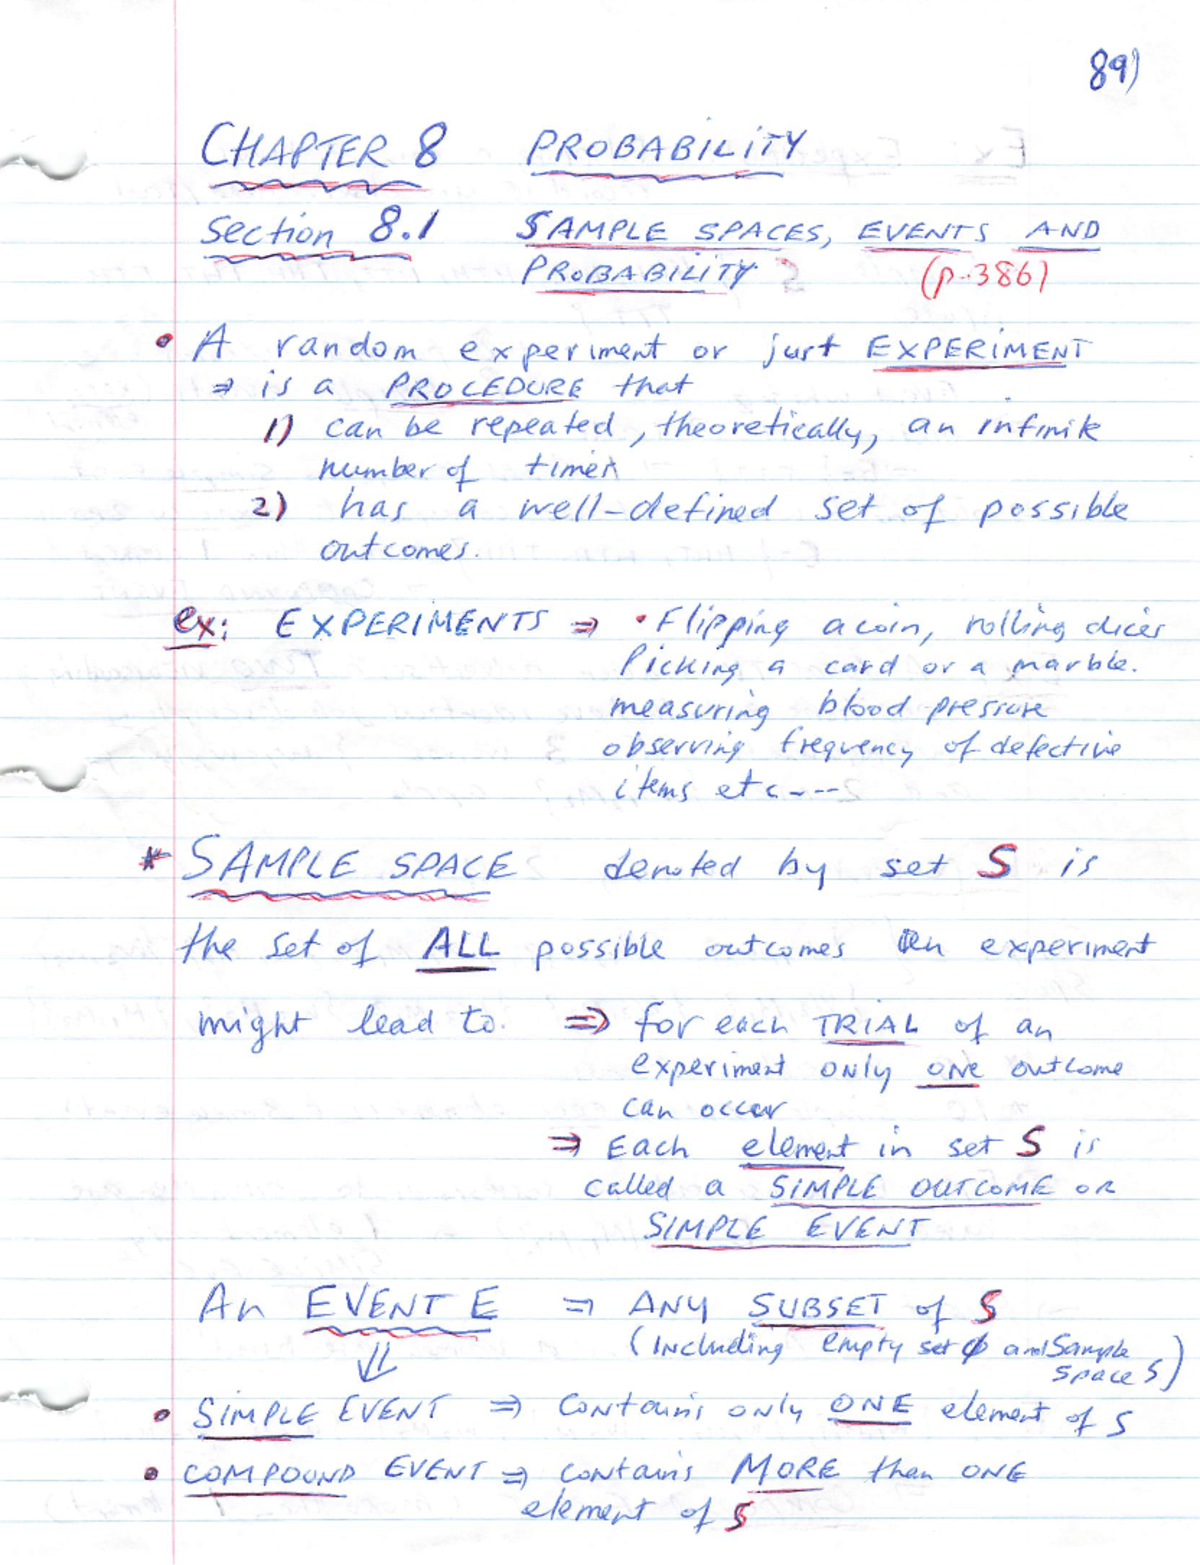 89)
CHAPTER 8 PROBABILITY
Section 8.1 SAMPLE SPACES, EVENTS AND
PROBABILITY (p.386)
• A random experiment or just EXPERIMENT
⇒ is a PROCEDURE that
1) can be repeated, theoretically, an infinite
number of times
2) has a well-defined set of possible
outcomes.
ex: EXPERIMENTS ⇒ • Flipping a coin, rolling dices
Picking a card or a marble.
measuring blood pressure
observing frequency of defective
items etc----
* SAMPLE SPACE denoted by set S is
the set of ALL possible outcomes an experiment
might lead to. ⇒ for each TRIAL of an
experiment only ONE outcome
can occur
⇒ Each element in set S is
called a SIMPLE OUTCOME OR
SIMPLE EVENT
An EVENT E ⇒ ANY SUBSET of S
(Including empty set ϕ and Sample
space S)
⇓
• SIMPLE EVENT ⇒ Contains only ONE element of S
• COMPOUND EVENT ⇒ contains MORE than ONE
element of S